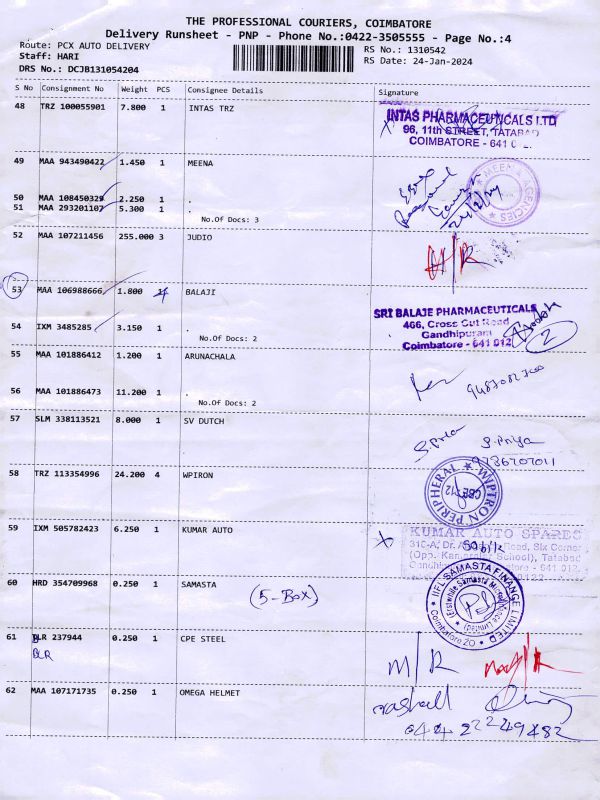 THE PROFESSIONAL COURIERS, COIMBATORE
Delivery Runsheet - PNP - Phone No.:0422-3505555 - Page No.:4
Route: PCX AUTO DELIVERY RS No.: 1310542
Staff: HARI RS Date: 24-Jan-2024
DRS No.: DCJB131054204
S No Consignment No Weight PCS Consignee Details Signature
48 TRZ 100055901 7.800 1 INTAS TRZ
INTAS PHARMACEUTICALS LTD
96, 11th STREET, TATABAD
COIMBATORE - 641 0
49 MAA 943490422 1.450 1 MEENA
MEENA AGENCIES
50 MAA 108450329 2.250 1 .
51 MAA 293201107 5.300 1 .
No.Of Docs: 3
52 MAA 107211456 255.000 3 JUDIO
53 MAA 106988666 1.800 BALAJI
SRI BALAJE PHARMACEUTICALS
466, Cross Cut Road
Gandhipuram
Coimbatore - 641 012
2
54 IXM 3485285 3.150 1 .
No.Of Docs: 2
55 MAA 101886412 1.200 1 ARUNACHALA
56 MAA 101886473 11.200 1 .
No.Of Docs: 2
57 SLM 338113521 8.000 1 SV DUTCH
S.Priya
9786207011
58 TRZ 113354996 24.200 4 WPIRON
WIPTRON PERIPHERAL
CBE-12
59 IXM 505782423 6.250 1 KUMAR AUTO
KUMAR AUTO SPARES
310-A, Dr. Road, Six Corner
(Opp. School), Tatabad
Coimbatore - 641 012.
60 HRD 354709968 0.250 1 SAMASTA
(5-Box)
IIFL SAMASTA FINANCE LIMITED
Coimbatore 20
61 BLR 237944 0.250 1 CPE STEEL
BLR
M/R
62 MAA 107171735 0.250 1 OMEGA HELMET
0442 2249482